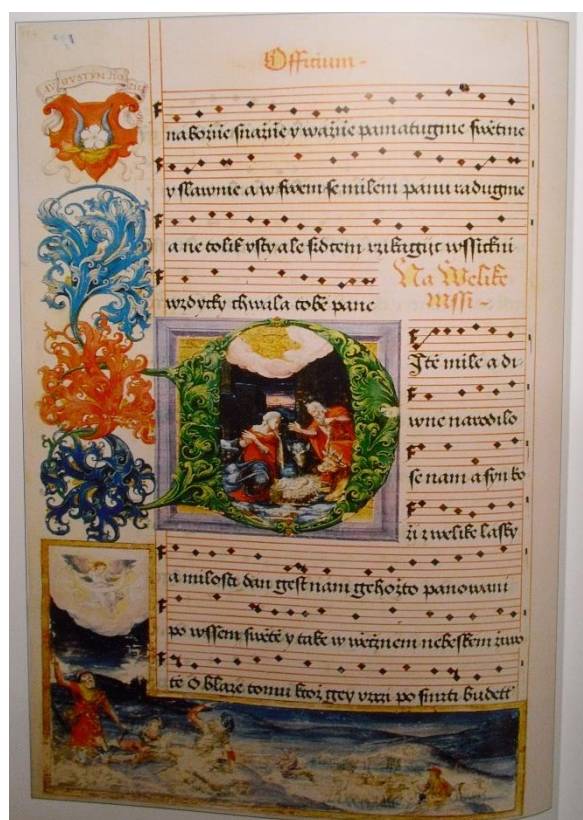 AVGVSTYN
Officium
nabožnie snažnie y wažnie pamatugme swětme
y slawnie a w swem se milem panu radugme
a ne tolik vsty ale sidcem wssickni
wzdycky chwala tobě pane
Na Welike
Mssi
Ditě mile a di-
wne narodilo
se nam a syn bo
ži z welike lasky
a milosti dan gest nam gehožto panowani
po wssem swětě y take w wěčnem nebeskem žiwo
tě O blaze tomu ktož gey vzrzi po smrti budett